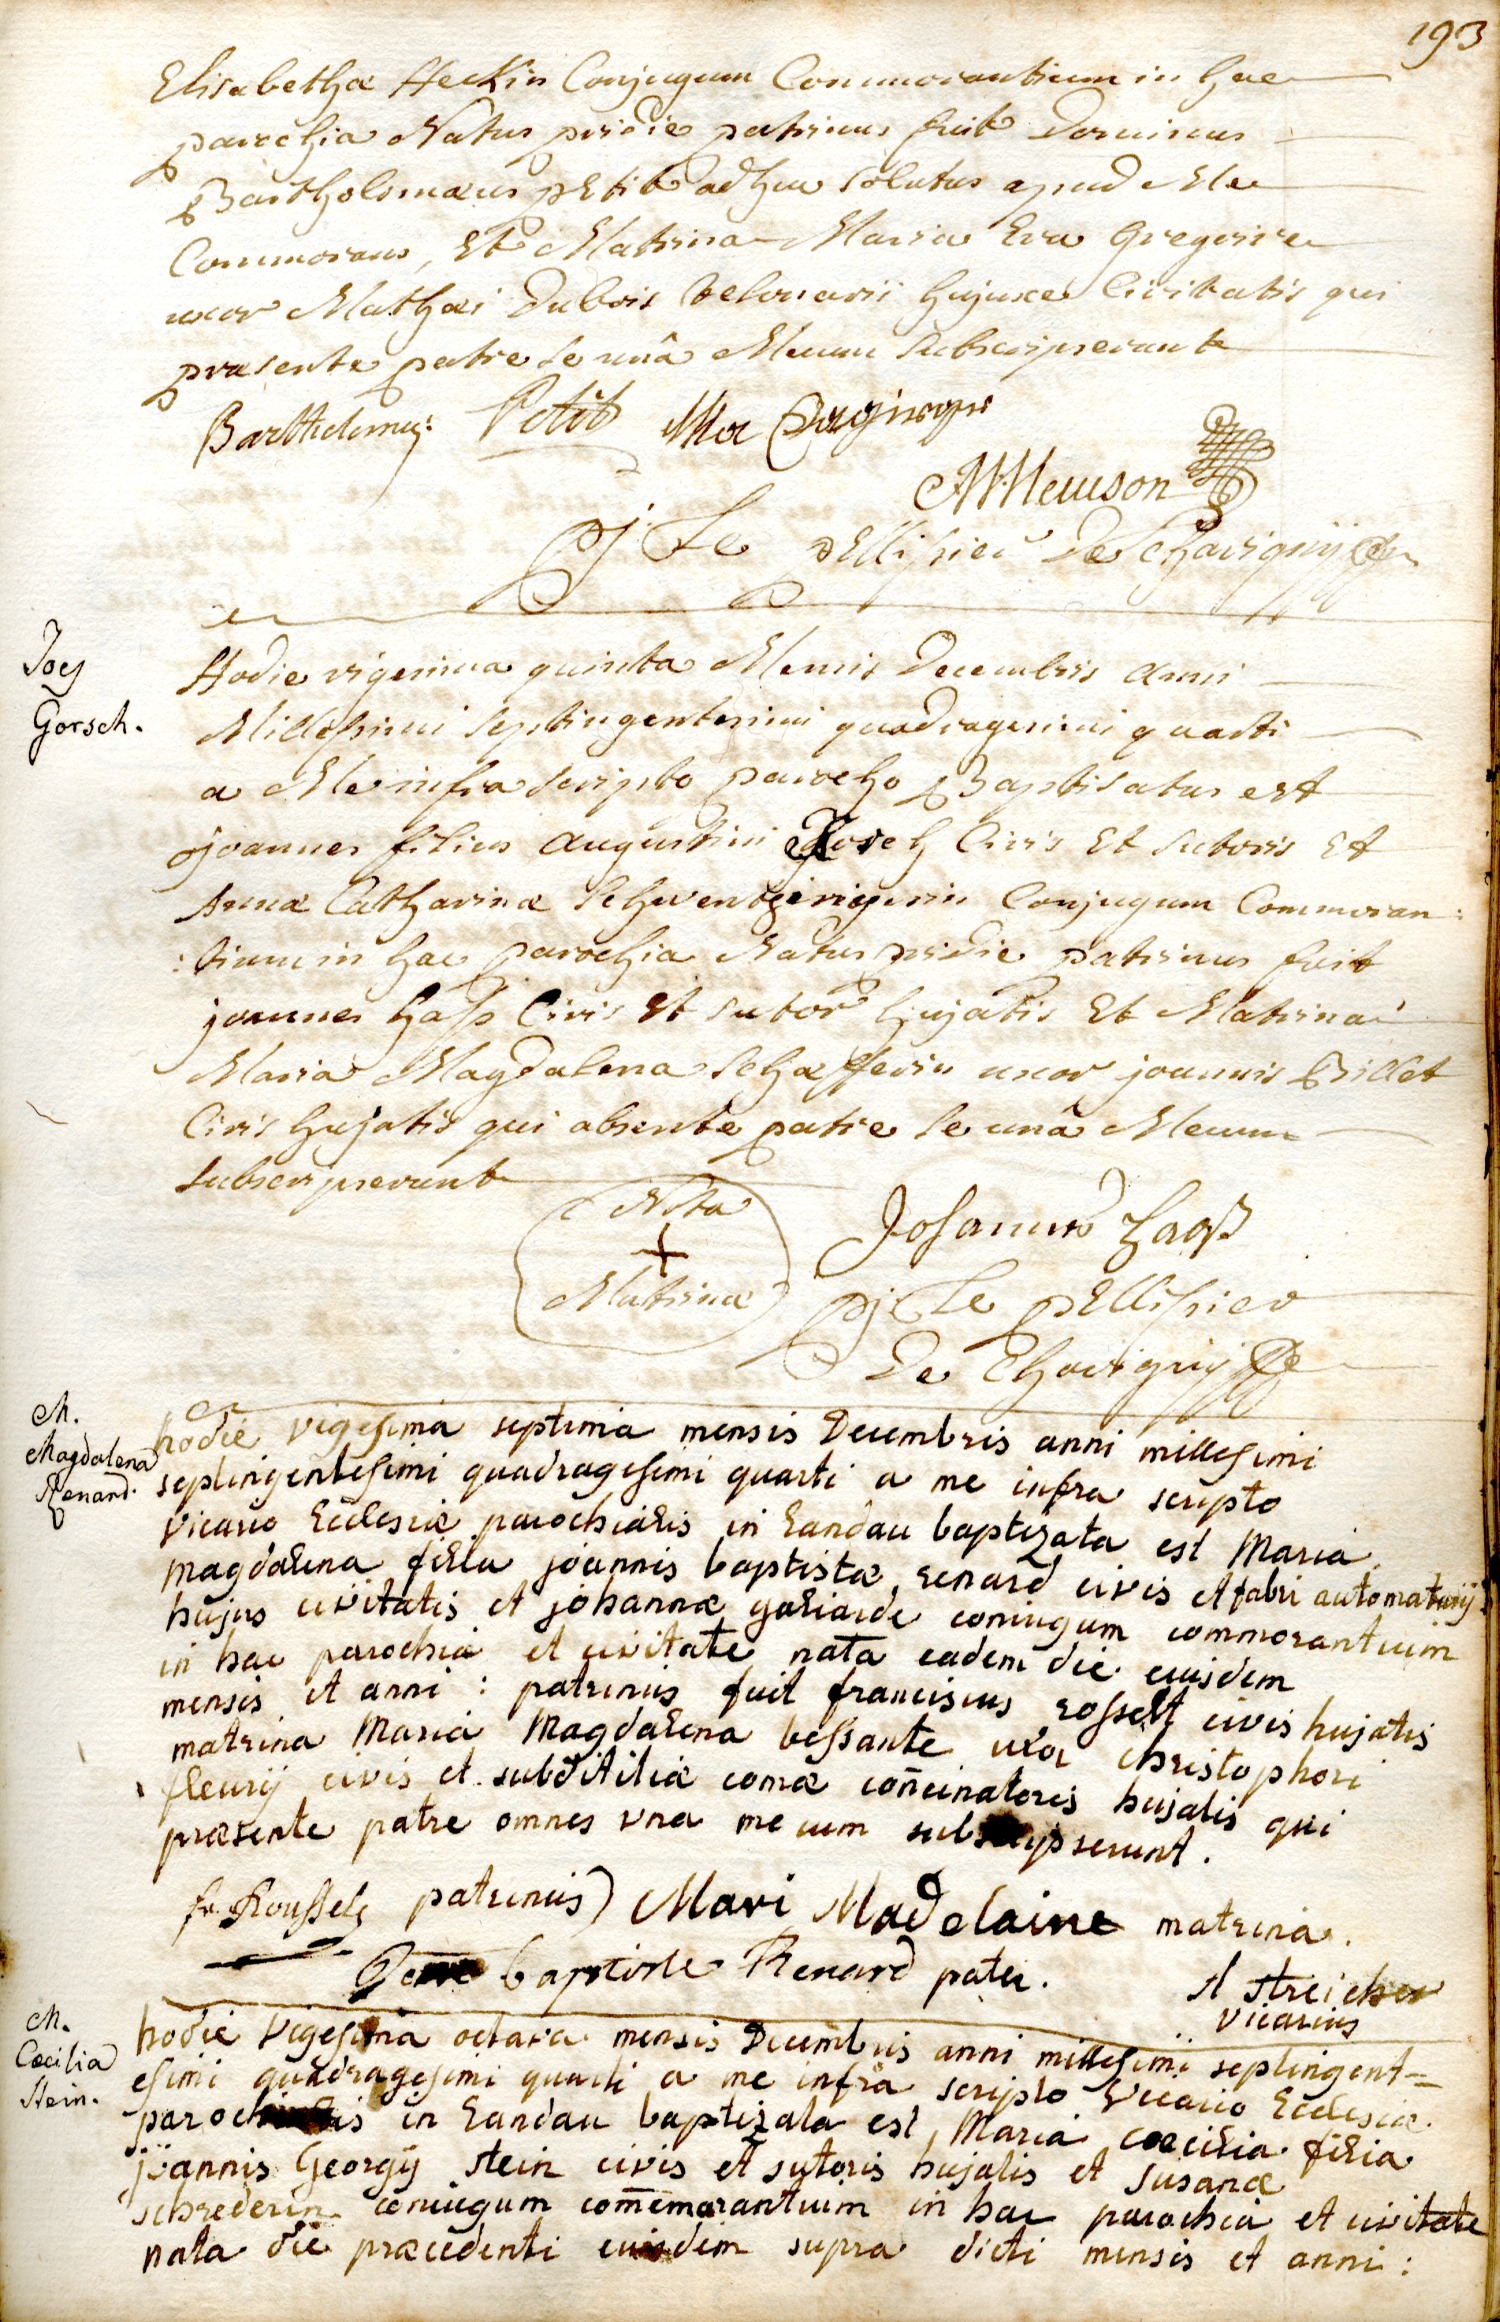 193
Elisabethæ Heckin Conjugum Commorantium in hac
parochia Natus pridie patrinus fuit Dominus
Bartholomæus pEtit adhuc solutus apud Me
Commorans, Et Matrina Maria Eva Gregoire
uxor Mathæi Dubois telonarii hujusce Civitatis qui
præsente patre se unâ Mecum subscripserunt
Barthelemy: Petit
pj Le pEllissier De Chavignÿ
Joës
Gorsch.
Hodie vigesima quinta Mensis Decembris anni
Millessimi septingentesimi quadragesimi quarti
a Me infra scripto parocho Baptisatus est
joannes filius augustini Civis Et sutoris Et
Annæ Catharinæ Conjugum Commoran:
:tium in hac parochia Natus pridie patrinus fuit
joannes hass Civis Et sutor hujatis Et Matrina
Maria Magdalena schæfferin uxor joannis Billet
Civis hujatis qui absente patre se unâ Mecum
subscripserunt
Nota
+
Matrinæ
Johannes haaß
pj Le pEllissier
De Chavignÿ
M.
Magdalena
Renard.
hodie vigesima septima mensis Decembris anni millesimi
septingentesimi quadragesimi quarti a me infra scripto
vicario Ecclesiæ parochialis in Landau baptizata est Maria
Magdalena filia joannis baptistæ renard civis et fabri automatarij
hujus civitatis et johannæ galiarde coniugum commorantium
in hac parochia et civitate nata eadem die eiusdem
mensis et anni : patrinus fuit franciscus rosselt civis hujatis
matrina Maria Magdalena bessante uxor christophori
fleurij civis et subdititiæ comæ concinatoris hujatis qui
præsente patre omnes vna me cum subscripserunt.
fr. Roussel patrinus) Mari Madelaine matrina.
baptiste Renard pater.
A streicher
vicarius
M.
Cæcilia
Stein.
hodie vigesima octava mensis Decembris anni millesimi septingent=
esimi quadragesimi quarti a me infra scripto Vicario Ecclesiæ
parochialis in Landau baptizata est Maria cæcilia filia
joannis Georgij stein civis et sutoris hujatis et susanæ
schrederin coniugum commemorantium in hac parochia et civitate
nata die præcedenti eiusdem supra dicti mensis et anni :